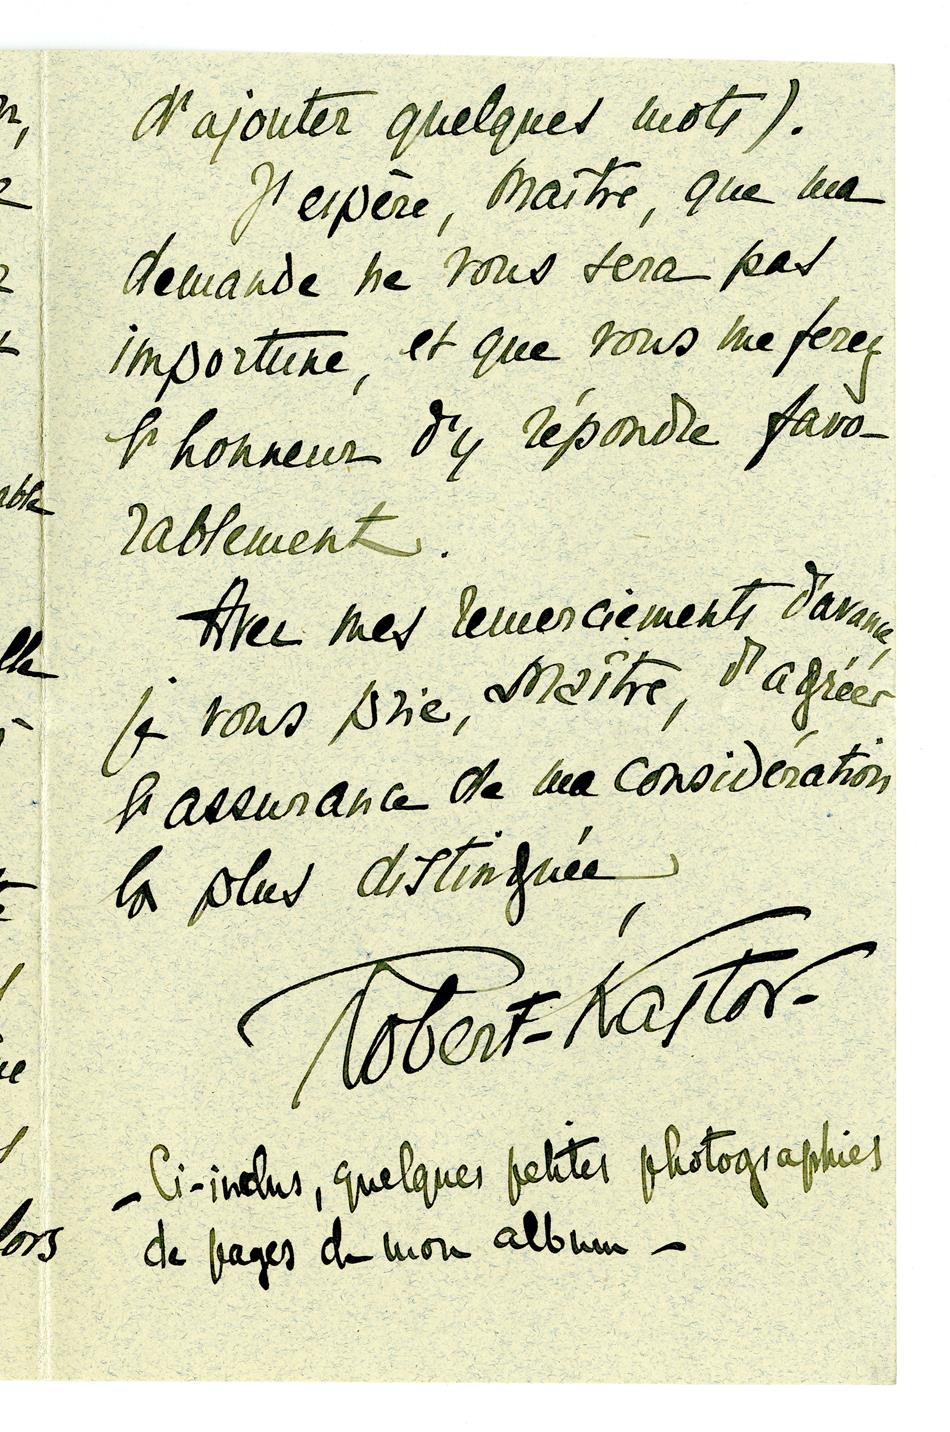 d'ajouter quelques mots).
J'espère, Maître, que ma
demande ne vous sera pas
importune, et que vous me ferez
l'honneur d'y répondre favo-
rablement.
Avec mes remerciements d'avance,
je vous prie, Maître, d'agréer
l'assurance de ma considération
la plus distinguée,
Robert-Kastor-
- Ci-inclus, quelques petites photographies
de pages de mon album -